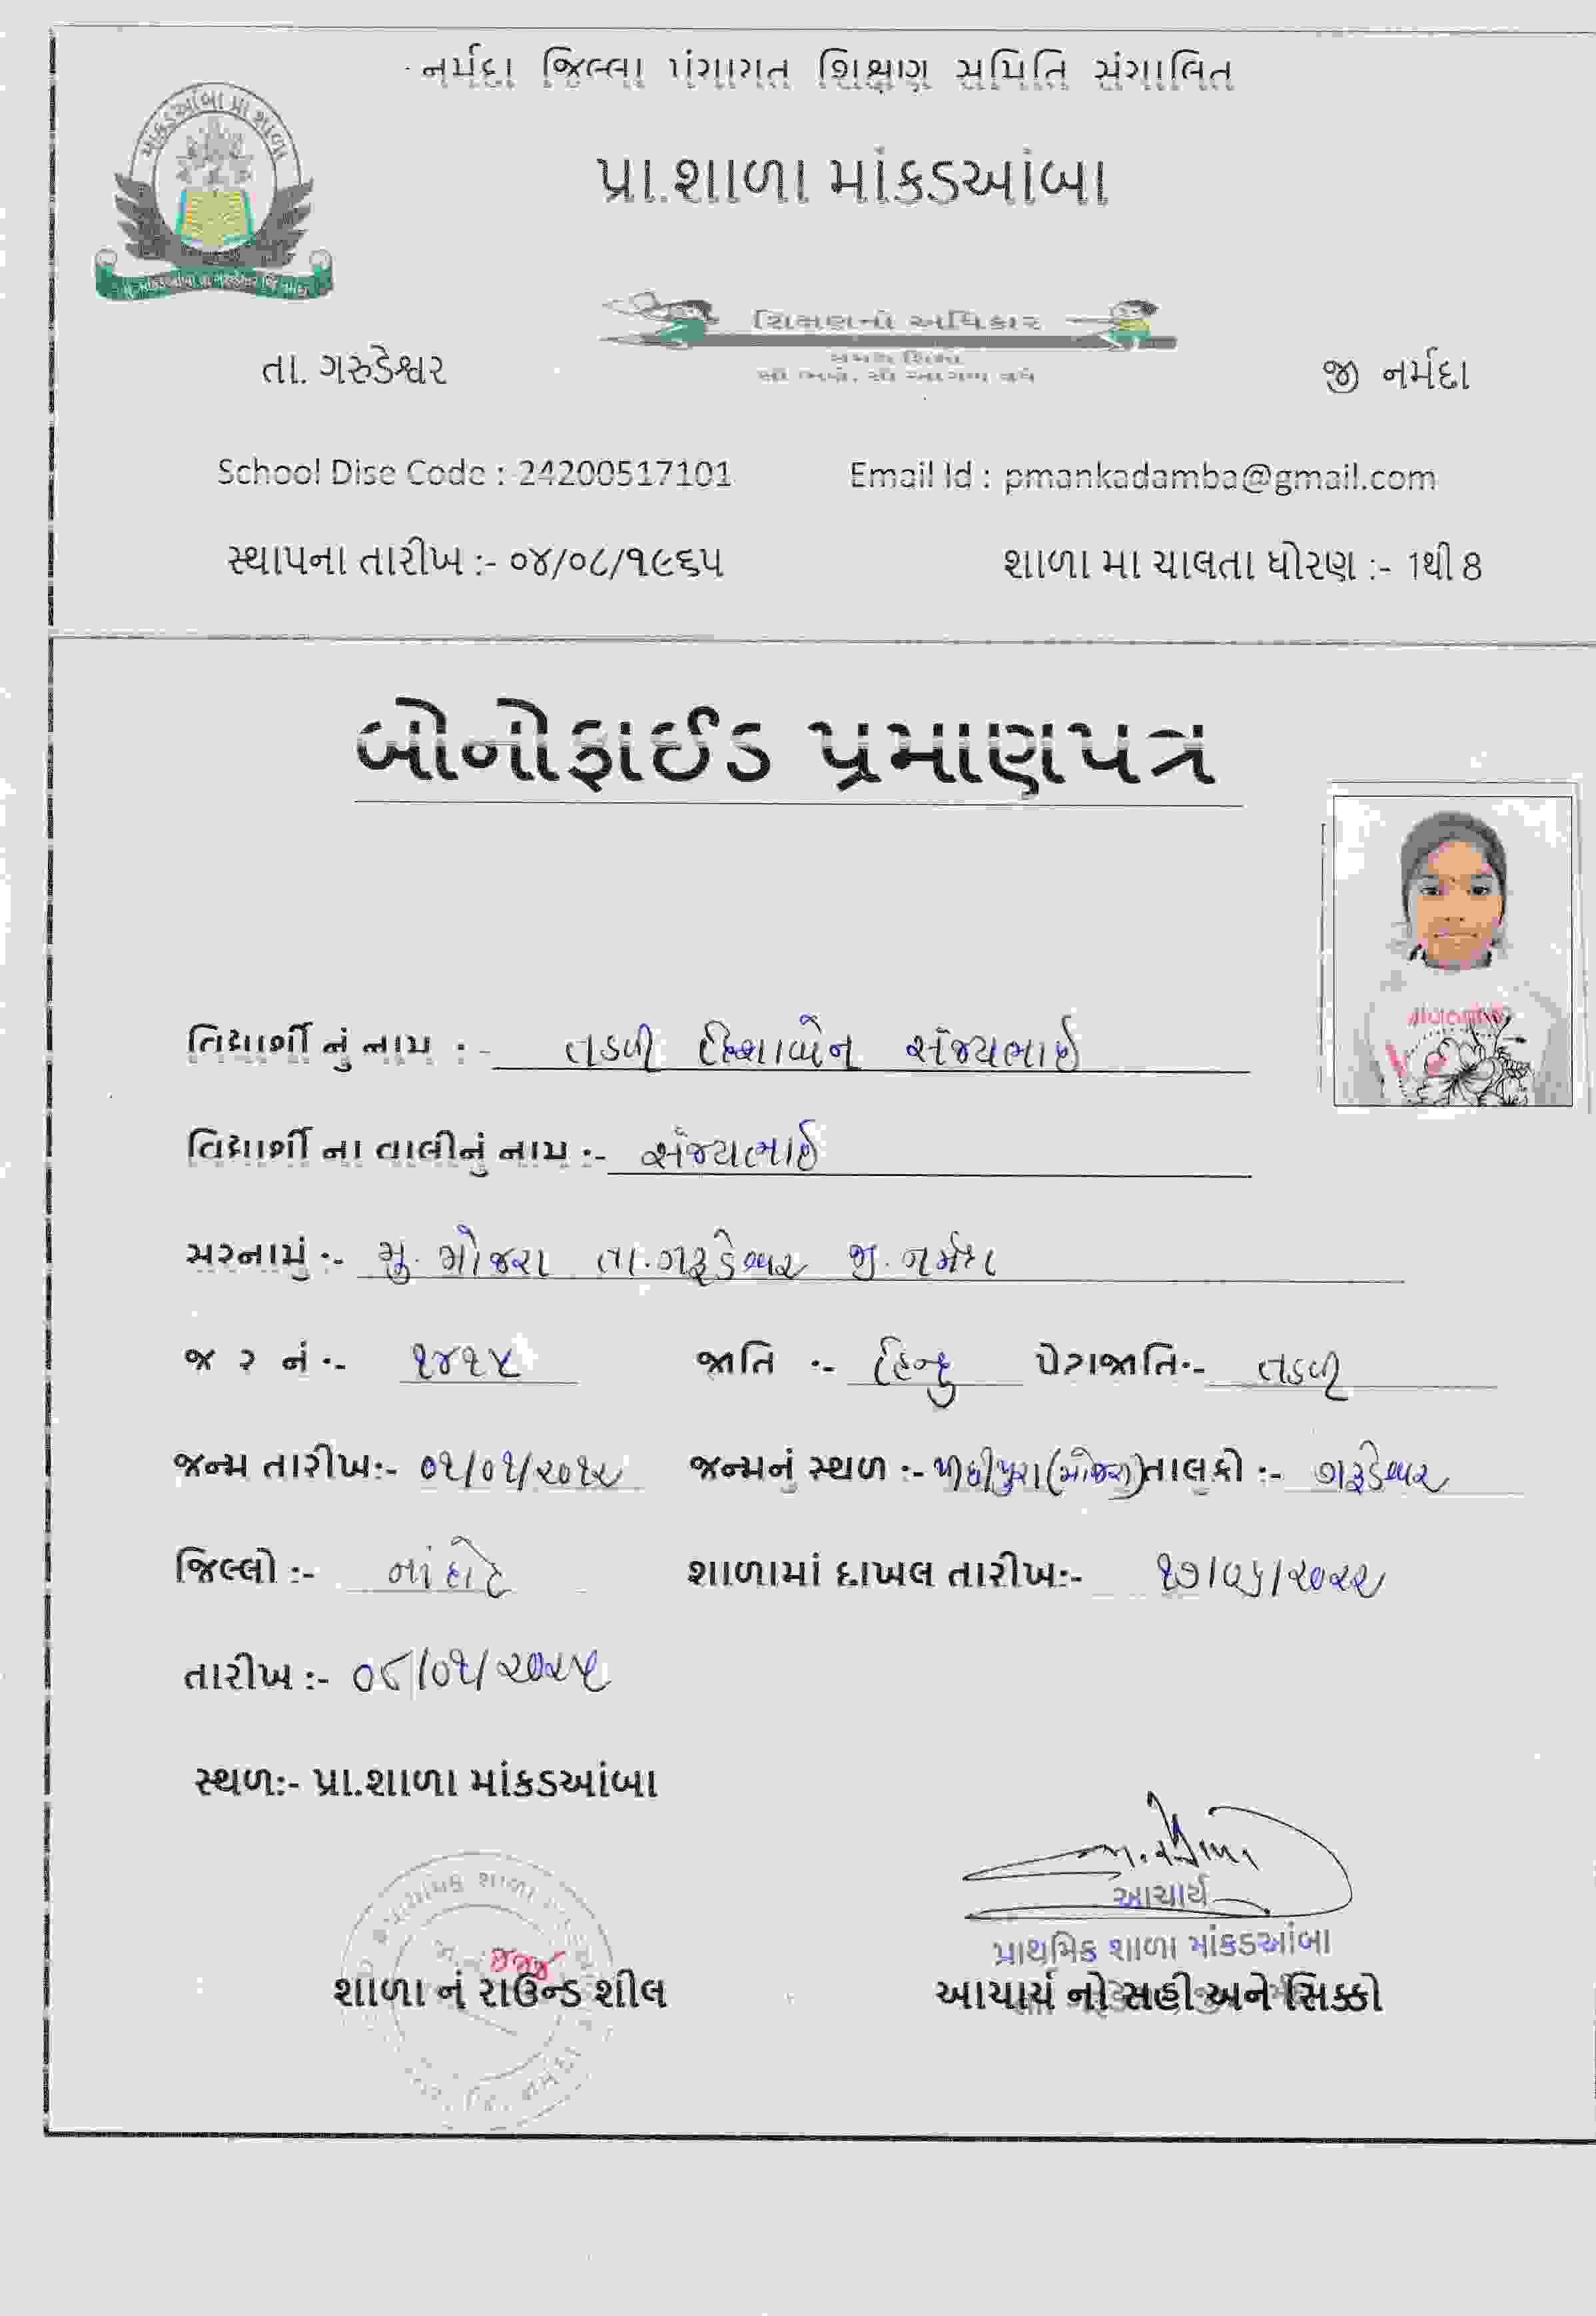 નર્મદા જિલ્લા પંચાયત શિક્ષણ સમિતિ સંચાલિત
પ્રા.શાળા માંકડઆંબા
શિક્ષણનો અધિકાર
તા. ગરુડેશ્વર
જી નર્મદા
School Dise Code : 24200517101 Email Id : pmankadamba@gmail.com
સ્થાપના તારીખ :- ૦૪/૦૮/૧૯૬૫ શાળા મા ચાલતા ધોરણ :- 1થી 8
બોનોફાઈડ પ્રમાણપત્ર
વિદ્યાર્થી નું નામ : - તડવી સંજયભાઈ
વિદ્યાર્થી ના વાલીનું નામ :- સંજયભાઈ
સરનામું :- મુ. મોજરા તા.ગરૂડેશ્વર જી. નર્મદા
જ ર નં :- ૧૪૧૪ જાતિ :- હિન્દુ પેટાજાતિ:- તડવી
જન્મ તારીખ:- ૦૧/૦૧/૨૦૧૨ જન્મનું સ્થળ :- (મોજરા) તાલુકો :- ગરૂડેશ્વર
જિલ્લો :- નાંદોદ શાળામાં દાખલ તારીખ:- ૧૭/૦૫/૨૦૨૨
તારીખ :- ૦૮/૦૧/૨૦૨૫
સ્થળ:- પ્રા.શાળા માંકડઆંબા
આચાર્ય
પ્રાથમિક શાળા માંકડઆંબા
શાળા નં રાઉન્ડ શીલ આચાર્ય નો સહી અને સિક્કો